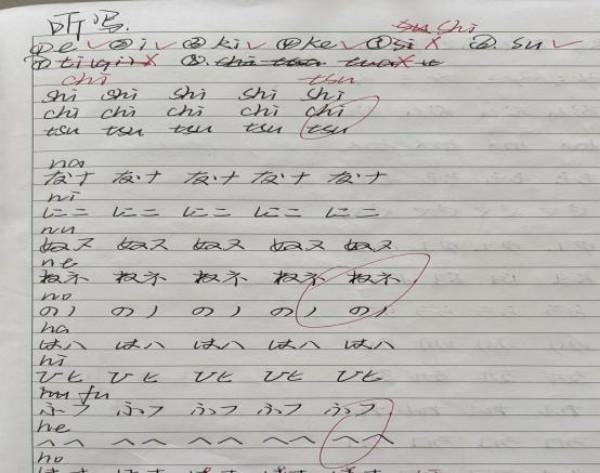 听写.
①e✓ ②i✓ ③ki✓ ④ke✓ ⑤si✗ shi ⑥.su✓
⑦ ✗ ⑧. ✗
chi tsu
shi shi shi shi shi
chi chi chi chi chi
tsu tsu tsu tsu tsu
na
なナ なナ なナ なナ なナ
ni
にニ にニ にニ にニ にニ
nu
ぬヌ ぬヌ ぬヌ ぬヌ ぬヌ
ne
ねネ ねネ ねネ ねネ ねネ
no
のノ のノ のノ のノ のノ
ha
はハ はハ はハ はハ はハ
hi
ひヒ ひヒ ひヒ ひヒ ひヒ
fu
ふフ ふフ ふフ ふフ ふフ
he
へヘ へヘ へヘ へヘ へヘ
ho